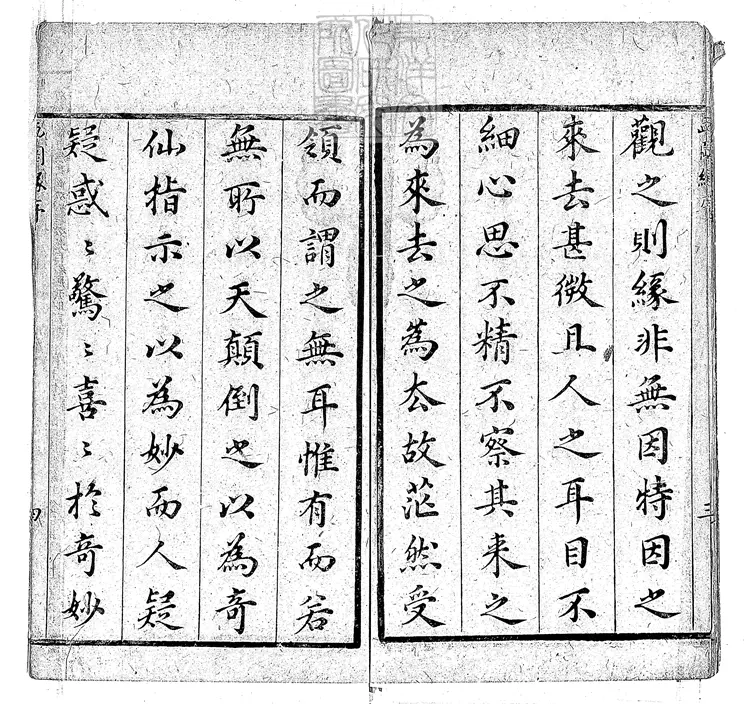 觀之則緣非無因特因之
來去甚微且人之耳目不
細心思不精不察其来之
為來去之為去故茫然受
領而謂之無耳惟有而若
無所以天顛倒之以為奇
仙指示之以為妙而人疑
疑惑〻驚〻喜〻於奇妙
三
四